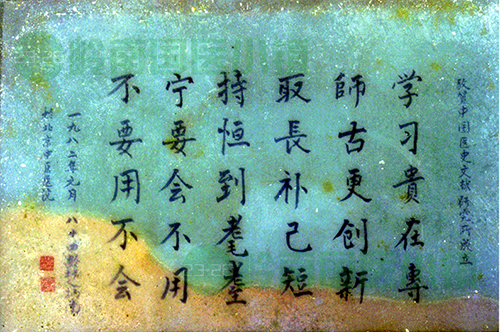 敬贺中国医史文献研究所成立
学习貴在專
師古更创新
取長补己短
持恒到耄耋
宁要会不用
不要用不会
一九八二年元月 八十四
北京中医医院